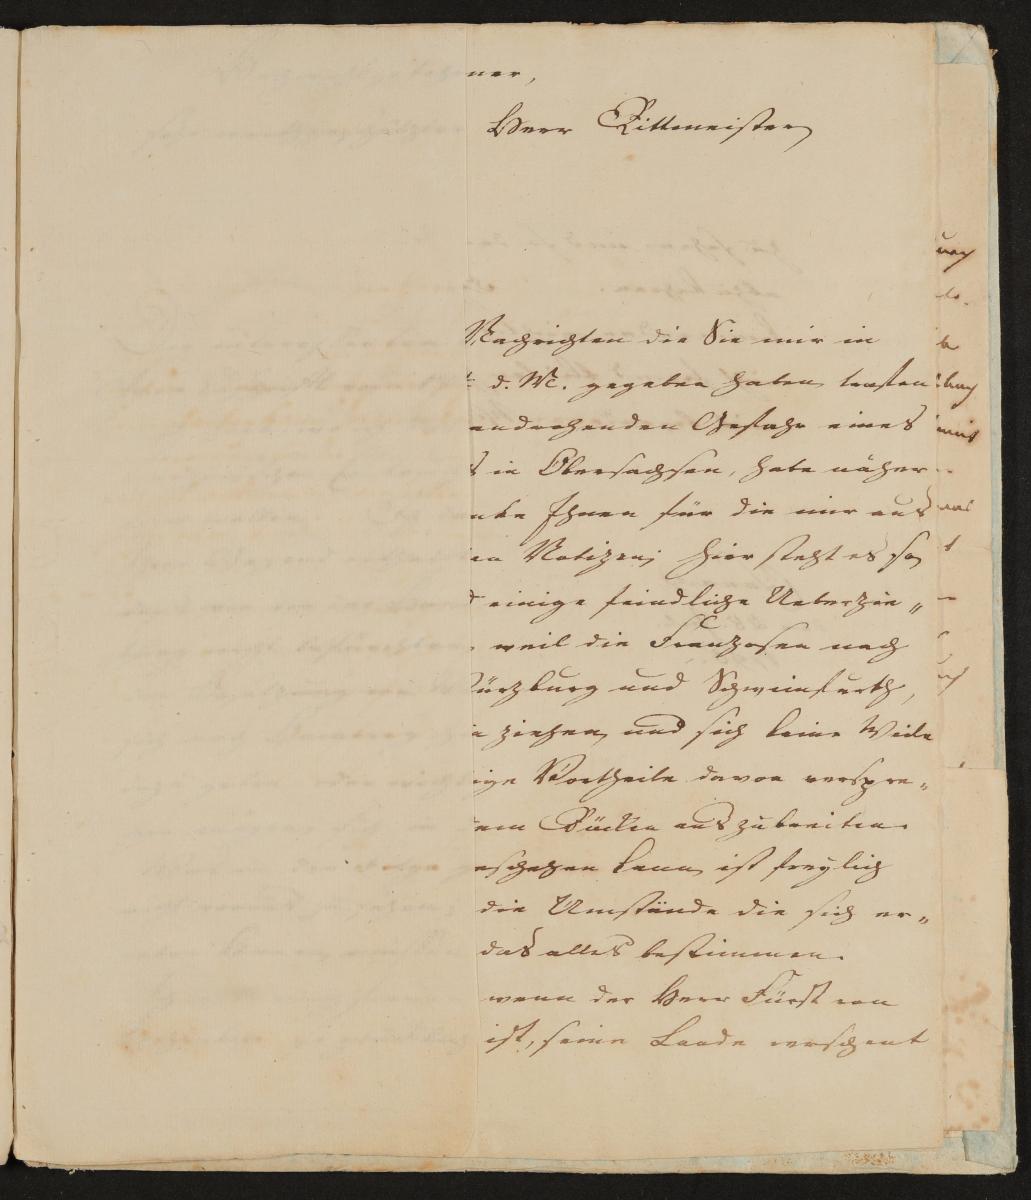 ner,
Herr Rittmeister
Nachrichten die Sie mir in
d. M. gegeben haben,
androhenden Gefahr eines
s in Obersachsen, habe näher
nke Ihnen für die mir aus
en Notizen; hier steht es so
d einige feindliche Ueberzie„
weil die Franzosen nach
ürzburg und Schweinfurth,
n ziehen, und sich keine Weile
ige Vortheile davon verspre„
em Rücken auszubreiten.
eschehen kann, ist freylich
die Umstände die sich er„
das alles bestimmen.
wenn der Herr Fürst von
ist, seine Lande verschont